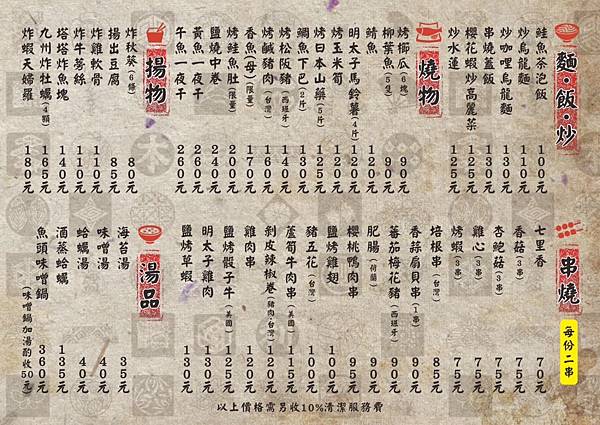 麵‧飯‧炒
鮭魚茶泡飯 100元
炒烏龍麵 110元
炒咖哩烏龍麵 130元
串燒蓋飯 110元
櫻花蝦炒高麗菜 125元
炒水蓮 125元
燒物
烤櫛瓜(6塊) 90元
柳葉魚(5隻) 90元
鯖魚 120元
明太子馬鈴薯(4片) 120元
烤玉米筍 120元
烤日本山藥(5片) 125元
鯛魚下巴(2片) 130元
烤松阪豬(西班牙) 140元
烤鹹豬肉(台灣) 160元
香魚(母)(限量) 170元
烤鮭魚肚(限量) 200元
鹽燒中卷 240元
黃魚一夜干 260元
午魚一夜干 260元
揚物
炸秋葵(6條) 80元
揚出豆腐 85元
炸雞軟骨 110元
炸牛蒡絲 110元
塔塔炸魚塊 140元
九州炸牡蠣(4顆) 165元
炸蝦天婦羅 180元
串燒
每份二串
七里香 70元
香菇(3串) 75元
杏鮑菇(3串) 75元
雞心(3串) 75元
烤蝦(3串) 75元
培根串(台灣) 85元
香蒜扇貝串(1串) 90元
蕃茄梅花豬(西班牙) 90元
肥腸(荷蘭) 90元
櫻桃鴨肉串 90元
鹽烤雞翅 100元
豬五花(台灣) 100元
蘆筍牛肉串(美國) 115元
剝皮辣椒卷(豬肉‧台灣) 120元
雞肉串 120元
鹽烤骰子牛(美國) 120元
明太子雞肉 130元
鹽烤草蝦 130元
湯品
海苔湯 35元
味噌湯 40元
蛤蠣湯 40元
酒蒸蛤蠣 135元
魚頭味噌鍋 360元
(味噌鍋加湯酌收50元)
以上價格需另收10%清潔服務費